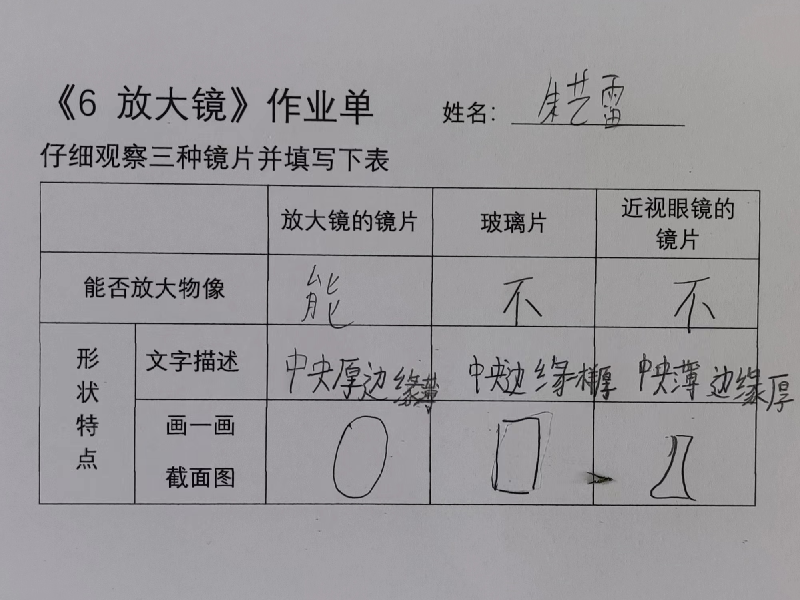 《6 放大镜》作业单 姓名: 朱艺雷
仔细观察三种镜片并填写下表
放大镜的镜片 玻璃片 近视眼镜的
镜片
能否放大物像 能 不 不
形状特点 文字描述 中央厚边缘薄 中央边缘一样厚 中央薄边缘厚
画一画
截面图